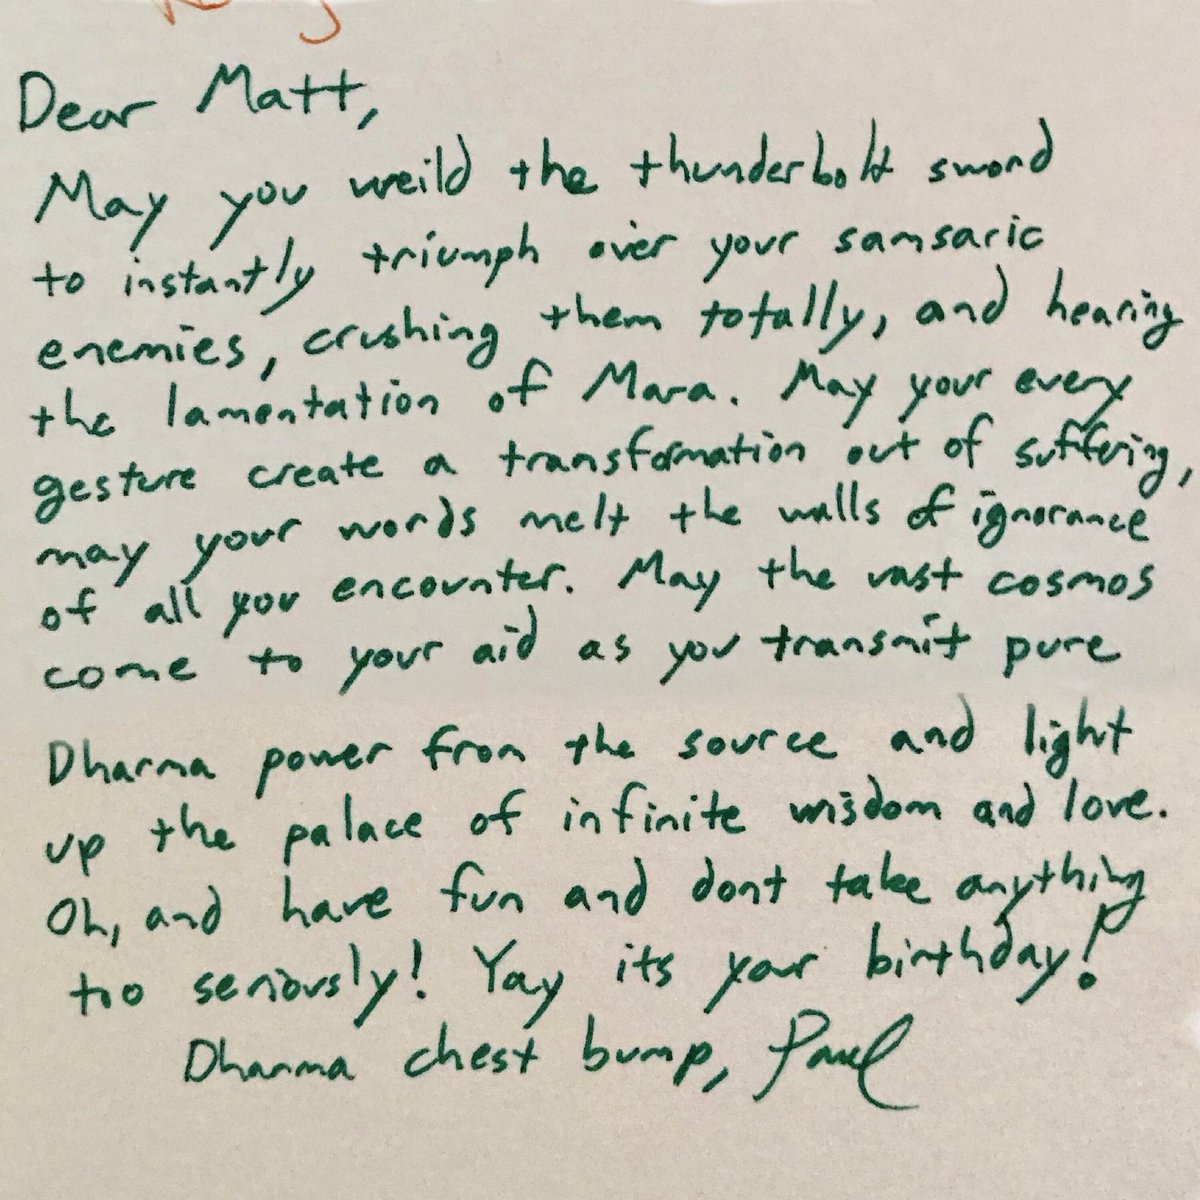 Dear Matt,
May you weild the thunderbolt sword
to instantly triumph over your samsaric
enemies, crushing them totally, and hearing
the lamentation of Mara. May your every
gesture create a transformation out of suffering,
may your words melt the walls of ignorance
of all you encounter. May the vast cosmos
come to your aid as you transmit pure
Dharma power from the source and light
up the palace of infinite wisdom and love.
Oh, and have fun and dont take anything
too seriously! Yay its your birthday!
Dharma chest bump, Paul